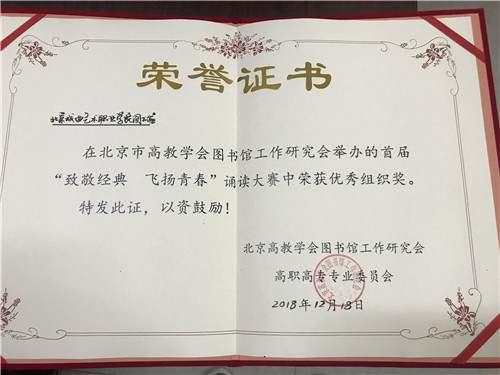 荣誉证书
北京戏曲艺术职业学院图书馆
在北京市高教学会图书馆工作研究会举办的首届
“致敬经典 飞扬青春”诵读大赛中荣获优秀组织奖。
特发此证，以资鼓励！
北京高教学会图书馆工作研究会
高职高专专业委员会
2018年12月18日